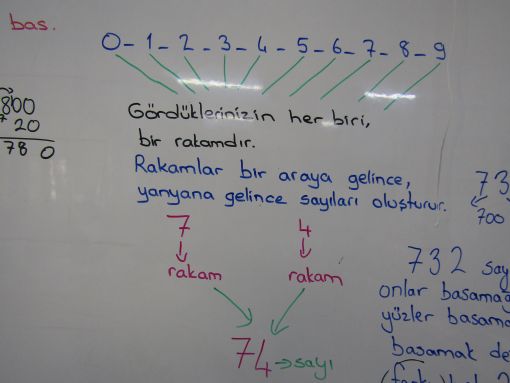 bas.
0-1-2-3-4-5-6-7-8-9
800
20
780
Gördüklerinizin her biri,
bir rakamdır.
Rakamlar bir araya gelince,
yanyana gelince sayıları oluşturur.
73
700
7 4
rakam rakam
74 → sayı
732 say
onlar basamağ
yüzler basama
basamak de